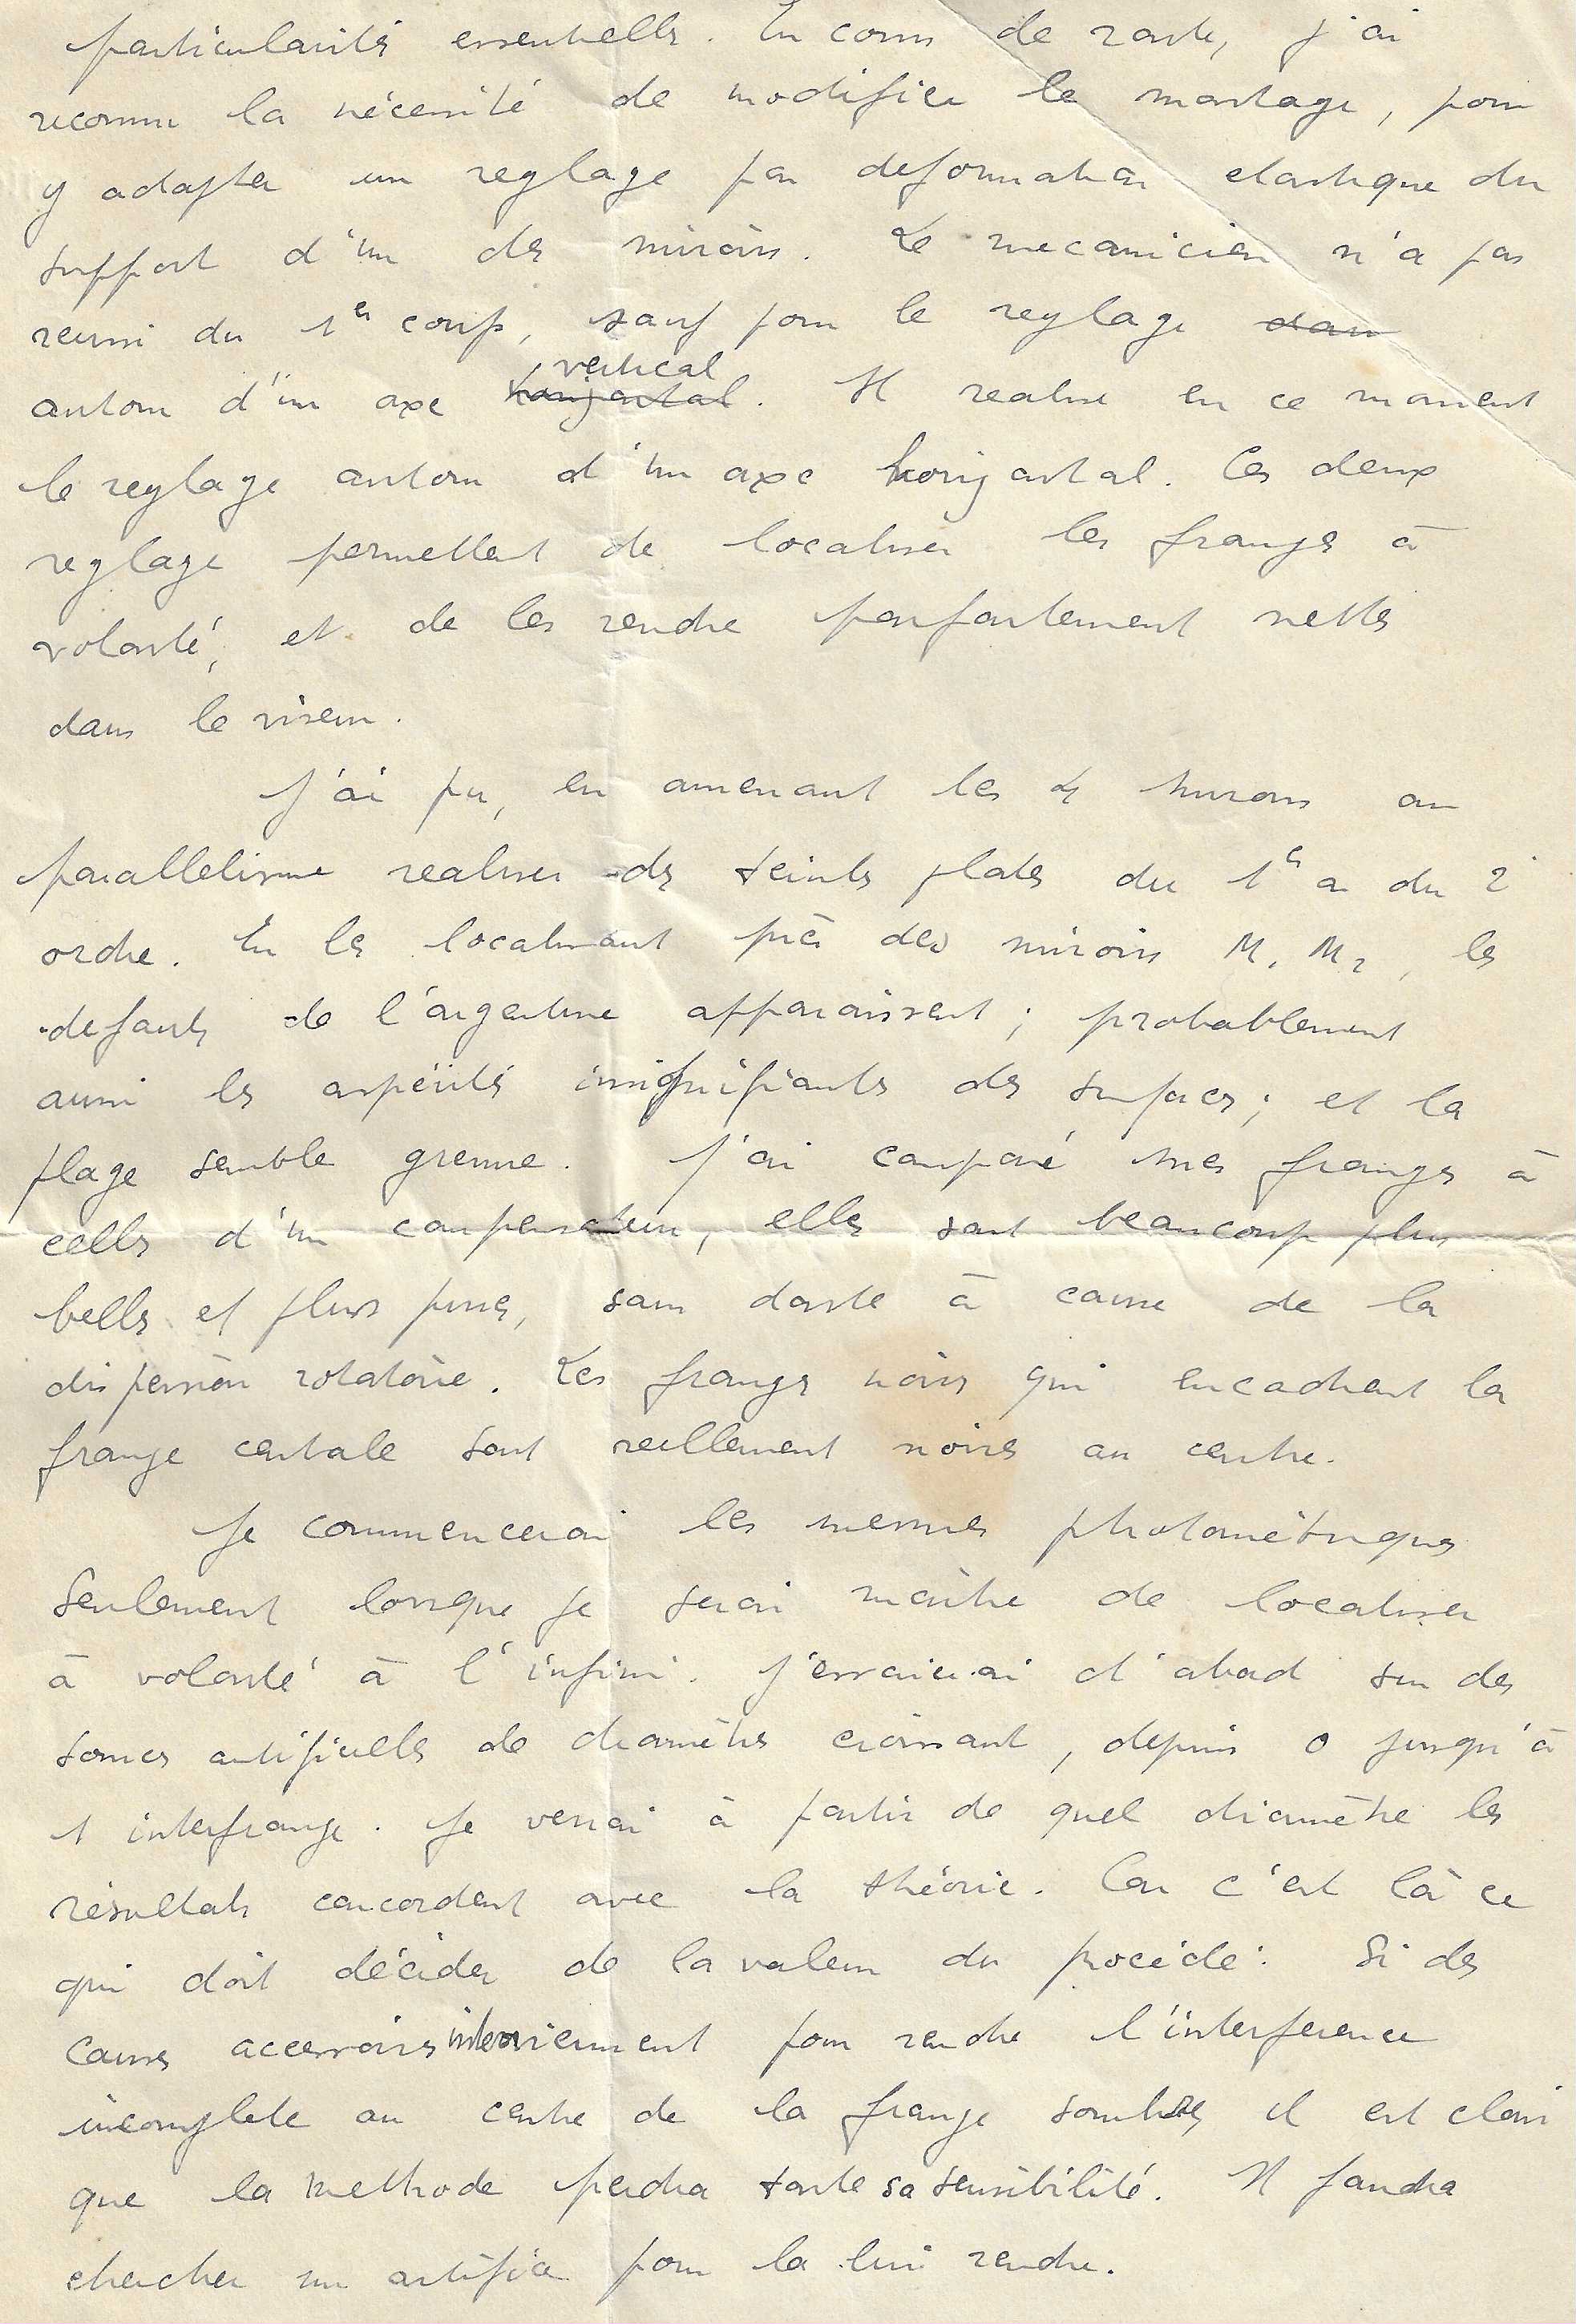 particularités essentielles. En cours de route, j'ai
reconnu la nécessité de modifier le montage, pour
y adapter un reglage par deformation elastique du
support d'un des miroirs. Le mecanicien n'a pas
reussi du 1er coup, sauf pour le reglage dans
vertical
autour d'un axe horizontal. Il realise en ce moment
le reglage autour d'un axe horizontal. Ces deux
reglage permettent de localiser les franges à
volonté, et de les rendre parfaitement nettes
dans le viseur.
J'ai pu, en amenant les 4 miroirs au
parallelisme realiser des teintes plates du 1er au du 2e
ordre. En les localisant près des miroirs M1 M2, les
defauts de l'argenture apparaissent ; probablement
aussi les aspérités insignifiantes des surfaces ; et la
plage semble grenue. J'ai comparé mes franges à
celles d'un compensateur, elles sont beaucoup plus
belles et plus pures, sans doute à cause de la
dispersion rotatoire. Les franges noires qui encadrent la
frange centrale sont reellement noires au centre.
Je commencerai les mesures photométriques
seulement lorsque je serai maître de localiser
à volonté à l'infini. J'essaierai d'abord sur des
sources artificielles de diamètres croissant, depuis 0 jusqu'à
1 interfrange. Je verrai à partir de quel diamètre les
résultats concordent avec la théorie. Car c'est là ce
qui doit décider de la valeur du procédé : Si des
causes accessoires interviennent pour rendre l'interference
incomplete au centre de la frange sombre, il est clair
que la methode perdra toute sa sensibilité. Il faudra
chercher un artifice pour la lui rendre.